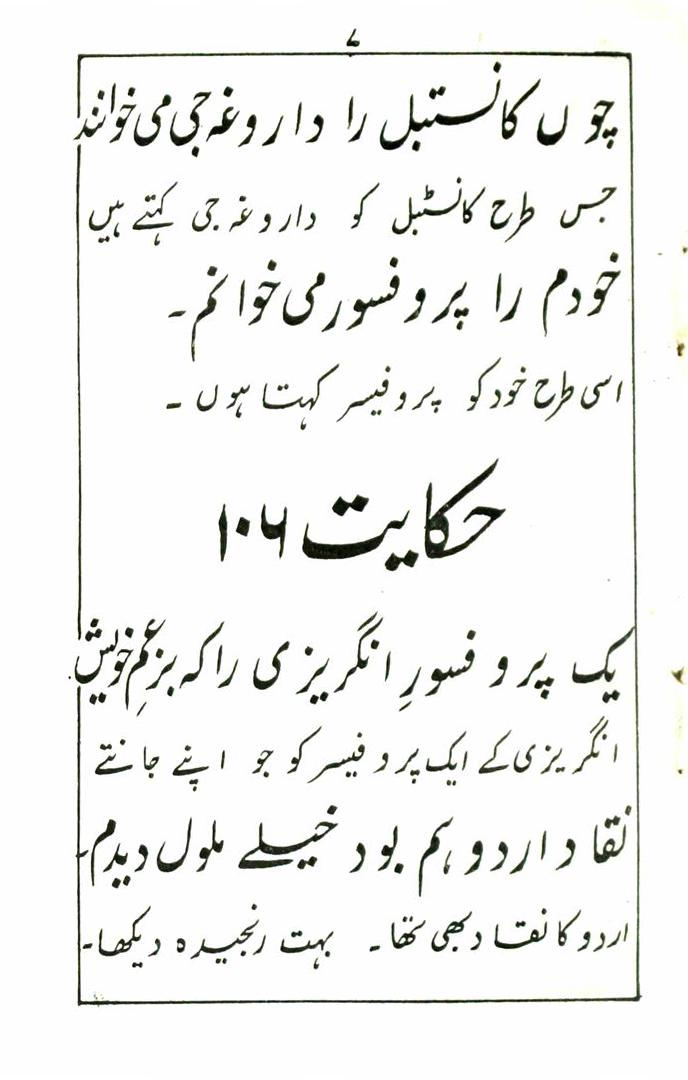 ۷
چوں کانستبل را داروغہ جی می خوانند
جس طرح کانسٹبل کو داروغہ جی کہتے ہیں
خودم را پروفسور می خوانم۔
اسی طرح خود کو پروفیسر کہتا ہوں۔
حکایت ۱۰۶
یک پروفسورِ انگریزی را کہ بزعمِ خویش
انگریزی کے ایک پروفیسر کو جو اپنے جانتے
نقاد اردو ہم بود خیلے ملول دیدم۔
اردو کا نقاد بھی تھا۔ بہت رنجیدہ دیکھا۔